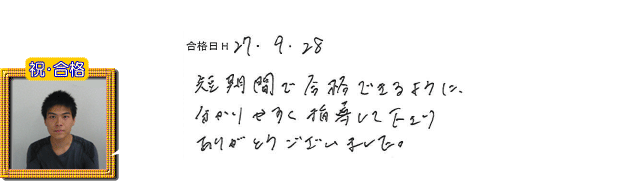 祝・合格
合格日 H 27.9.28
短期間で合格できるように、
分かりやすく指導して下さり
ありがとうございました。